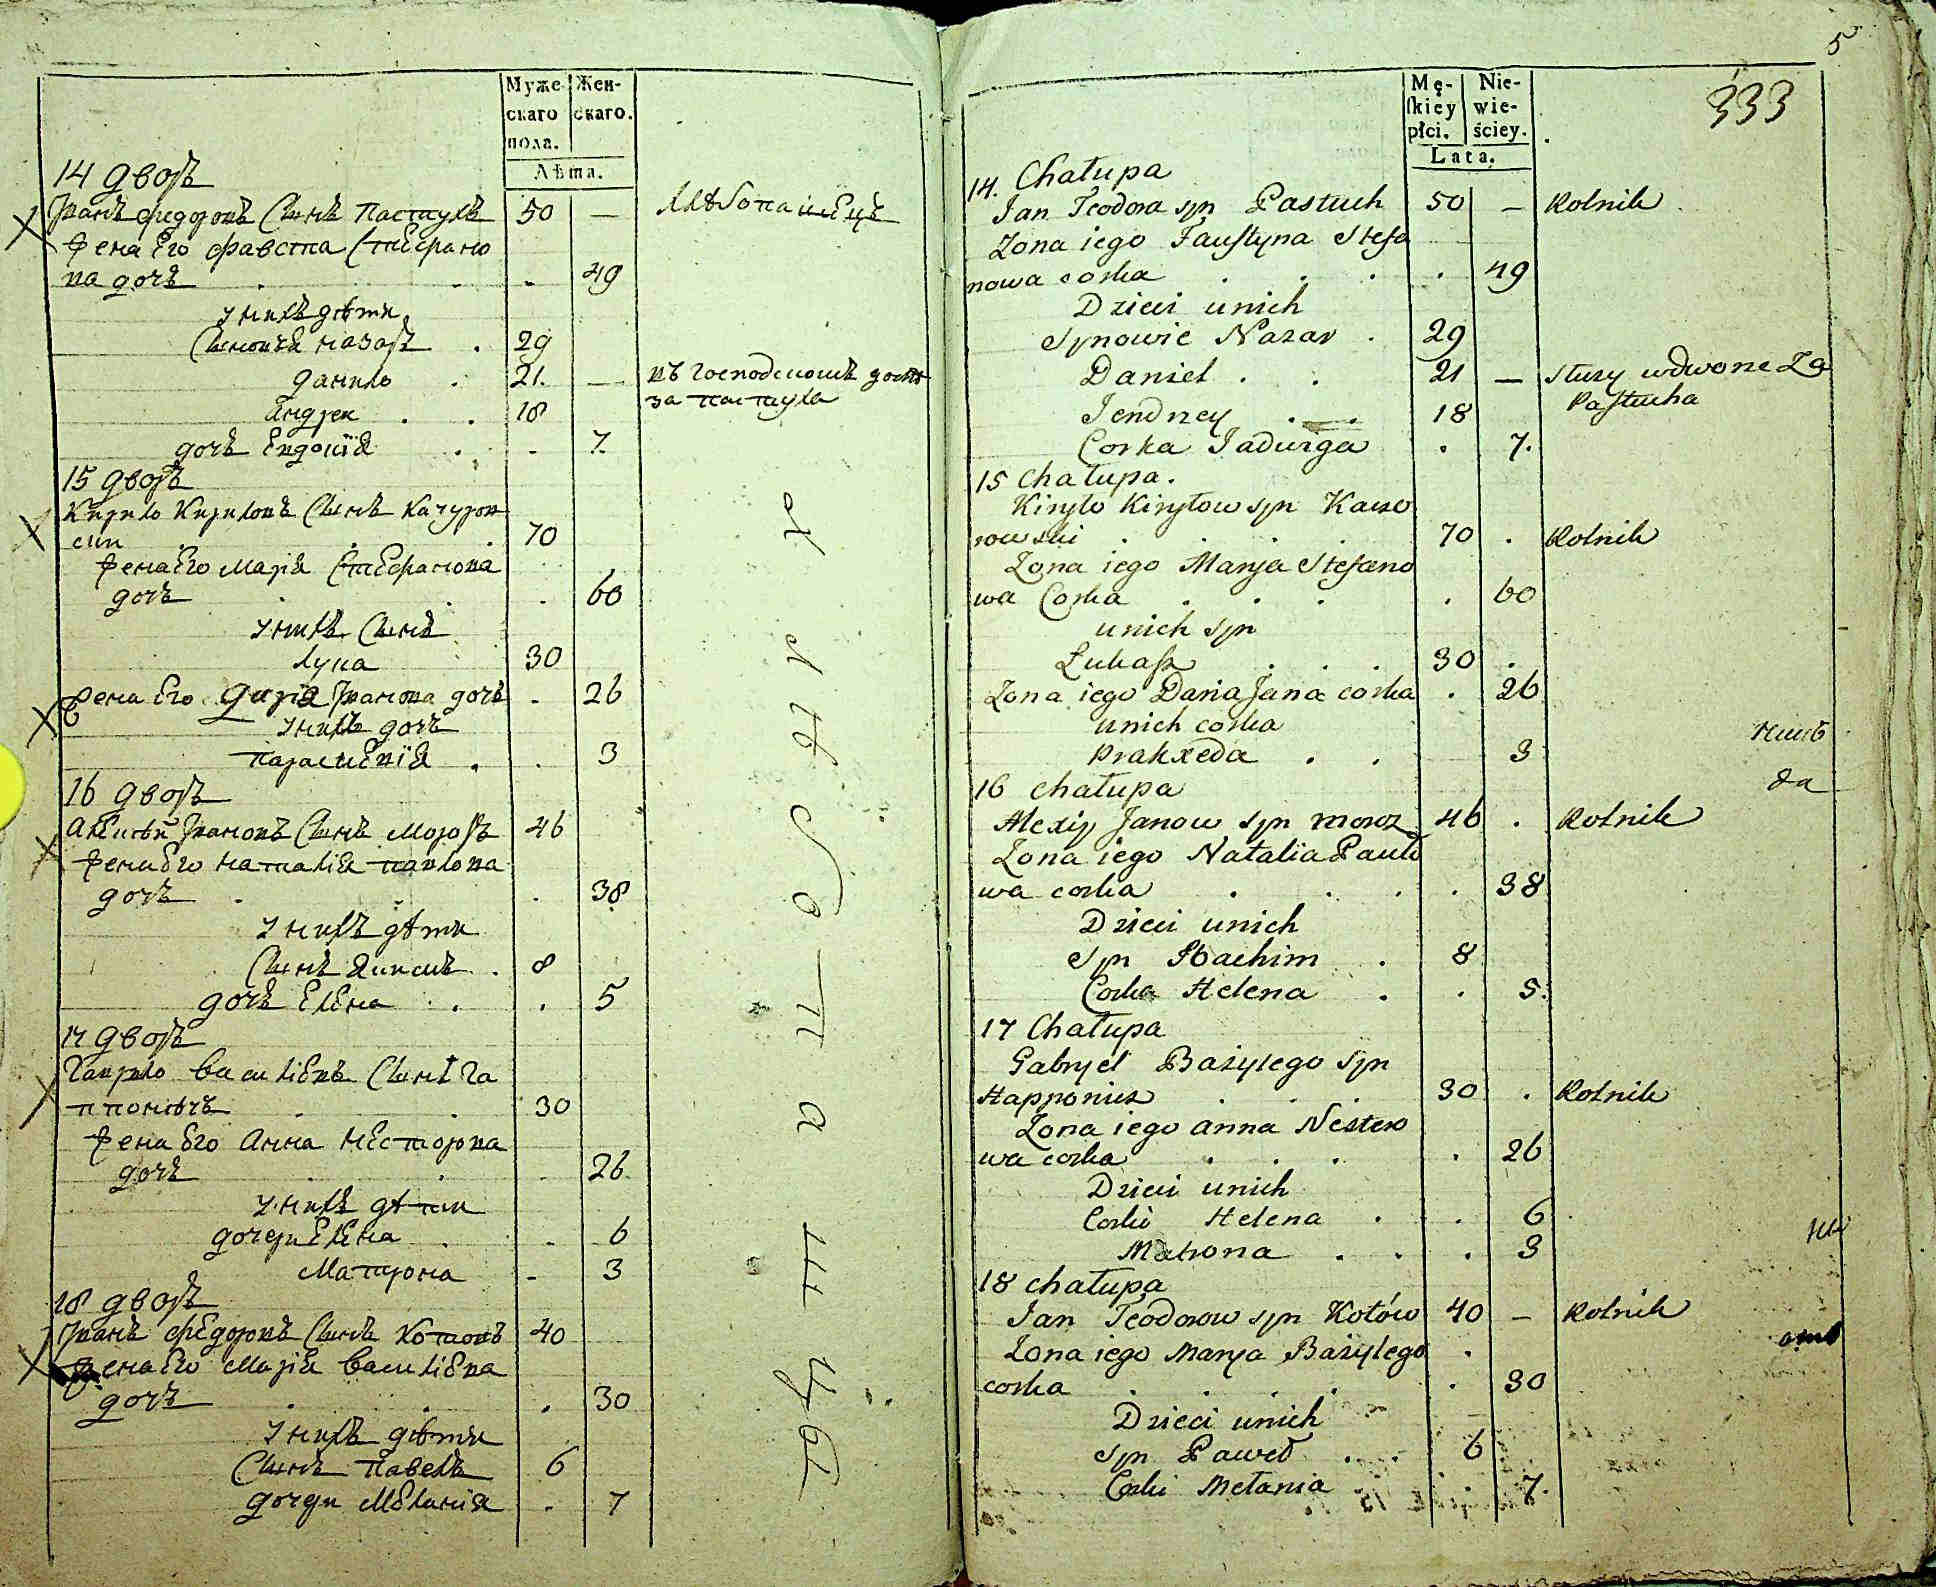 Муже- Жен-
скаго скаго.
пола.
Лѣта.
14 дворъ
Иванъ Федоровъ Сынъ Пастухъ 50 — хлѣбопашецъ
жена Его Фавста Стефано
ва дочь . . . 49
У нихъ дѣти
Сыновья Назаръ . 29
Данило . 21. — въ господскомъ дворѣ
за пастуха
Андрей . . 18
дочь Евдокія . . 7.
15 дворъ
Кирило Кириловъ Сынъ Качуров
ски . . 70
жена Его Марія Стефанова
дочь . . . 60
У нихъ Сынъ
Лука 30
жена Его Дарія Иванова дочь . 26
У нихъ дочь
Параскевія . . 3
16 дворъ
Алексѣй Ивановъ Сынъ Морозъ 46
жена Его Наталія Павлова
дочь . . . 38
У нихъ дѣти
Сынъ Якимъ . 8
дочь Елена . . . 5
17 дворъ
Гаврило Василіевъ Сынъ Га
ппоновъ . . 30
жена Его Анна Несторова
дочь . . . 26
У нихъ дѣти
дочери Елена . . 6
Матрона - 3
18 дворъ
Иванъ Федоровъ Сынъ Котовъ 40
жена Его Марія Василіева
дочь . . . 30
У нихъ дѣти
Сынъ Павелъ 6
дочери Меланія . 7
х л ѣ б о п а ш ц ы
5
333
Mę- Nie-
skiey wie-
płci. ściey.
Lata.
14. Chałupa
Jan Teodora syn Pastuch 50 — Rolnik
Zona iego Faustyna Stefa
nowa corka . . . . 49
Dzieci unich
Synowie Nazar . 29
Daniel . . 21 — służy wdworze Za
Pastucha
Jendrzey . . 18
Corka Jadwiga . 7.
15 Chałupa.
Kiryło Kiryłow syn Kaczo
rowski . . . 70 . Rolnik
Zona iego Marya Stefano
wa Corka . . . . 60
unich syn
Łukasz . . . 30 .
Zona iego Daria Jana corka . 26
unich corka
Prakxeda . . 3
16 chałupa
Alexiy Janow syn Moroz 46 . Rolnik
Zona iego Natalia Pawło
wa corka . . . . 38
Dzieci unich
Syn Joachim . 8
Corka Helena . . 5.
17 Chałupa
Gabryel Bazylego syn
Happonicz . . . 30 . Rolnik
Zona iego Anna Nestero
wa corka . . . . 26
Dzieci unich
Corki Helena . . 6
Matrona . . . 3
18 chałupa
Jan Teodorow syn Kotów 40 — Rolnik
Zona iego Marya Bazylego .
corka . . . . 30
Dzieci unich
Syn Paweł . . . 6
Corki Melania . 7.